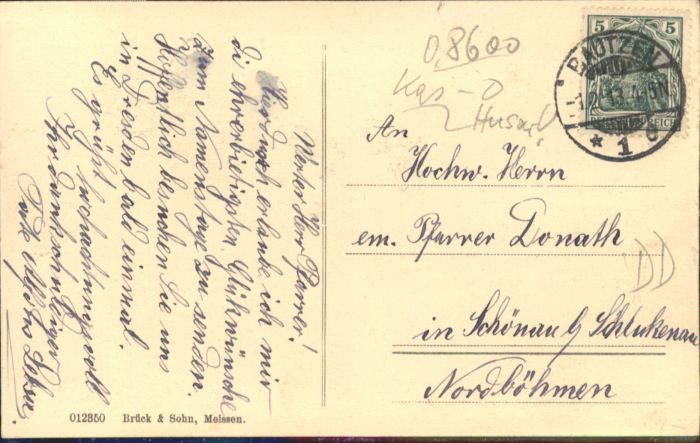 Werter Herr Pfarrer!
Hierdurch erlaube ich mir
die ehrerbietigsten Glückwünsche
zum Namenstage zu senden.
Hoffentlich besuchen Sie uns
in Dresden bald einmal.
Es grüßt hochachtungsvoll
Ihr dankschuldiger
0,8600
Kas-0
BAUTZEN
* 1 c
5 5
An
Hochw. Herrn
em. Pfarrer Donath
DD
in Schönau b/ Schluckenau
Nordböhmen
012350 Brück & Sohn, Meissen.